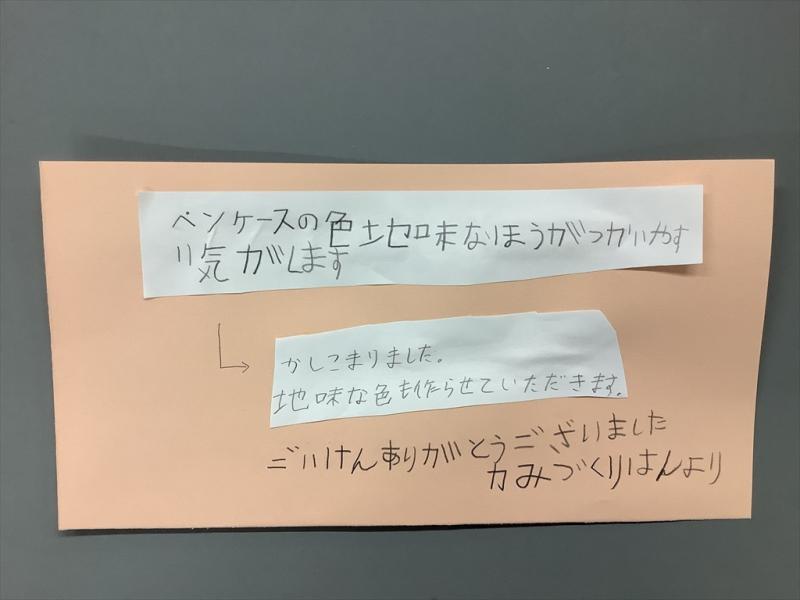 ペンケースの色地味なほうがつかいやす
い気がします
かしこまりました。
地味な色も作らせていただきます。
ごいけんありがとうございました
かみづくりはんより